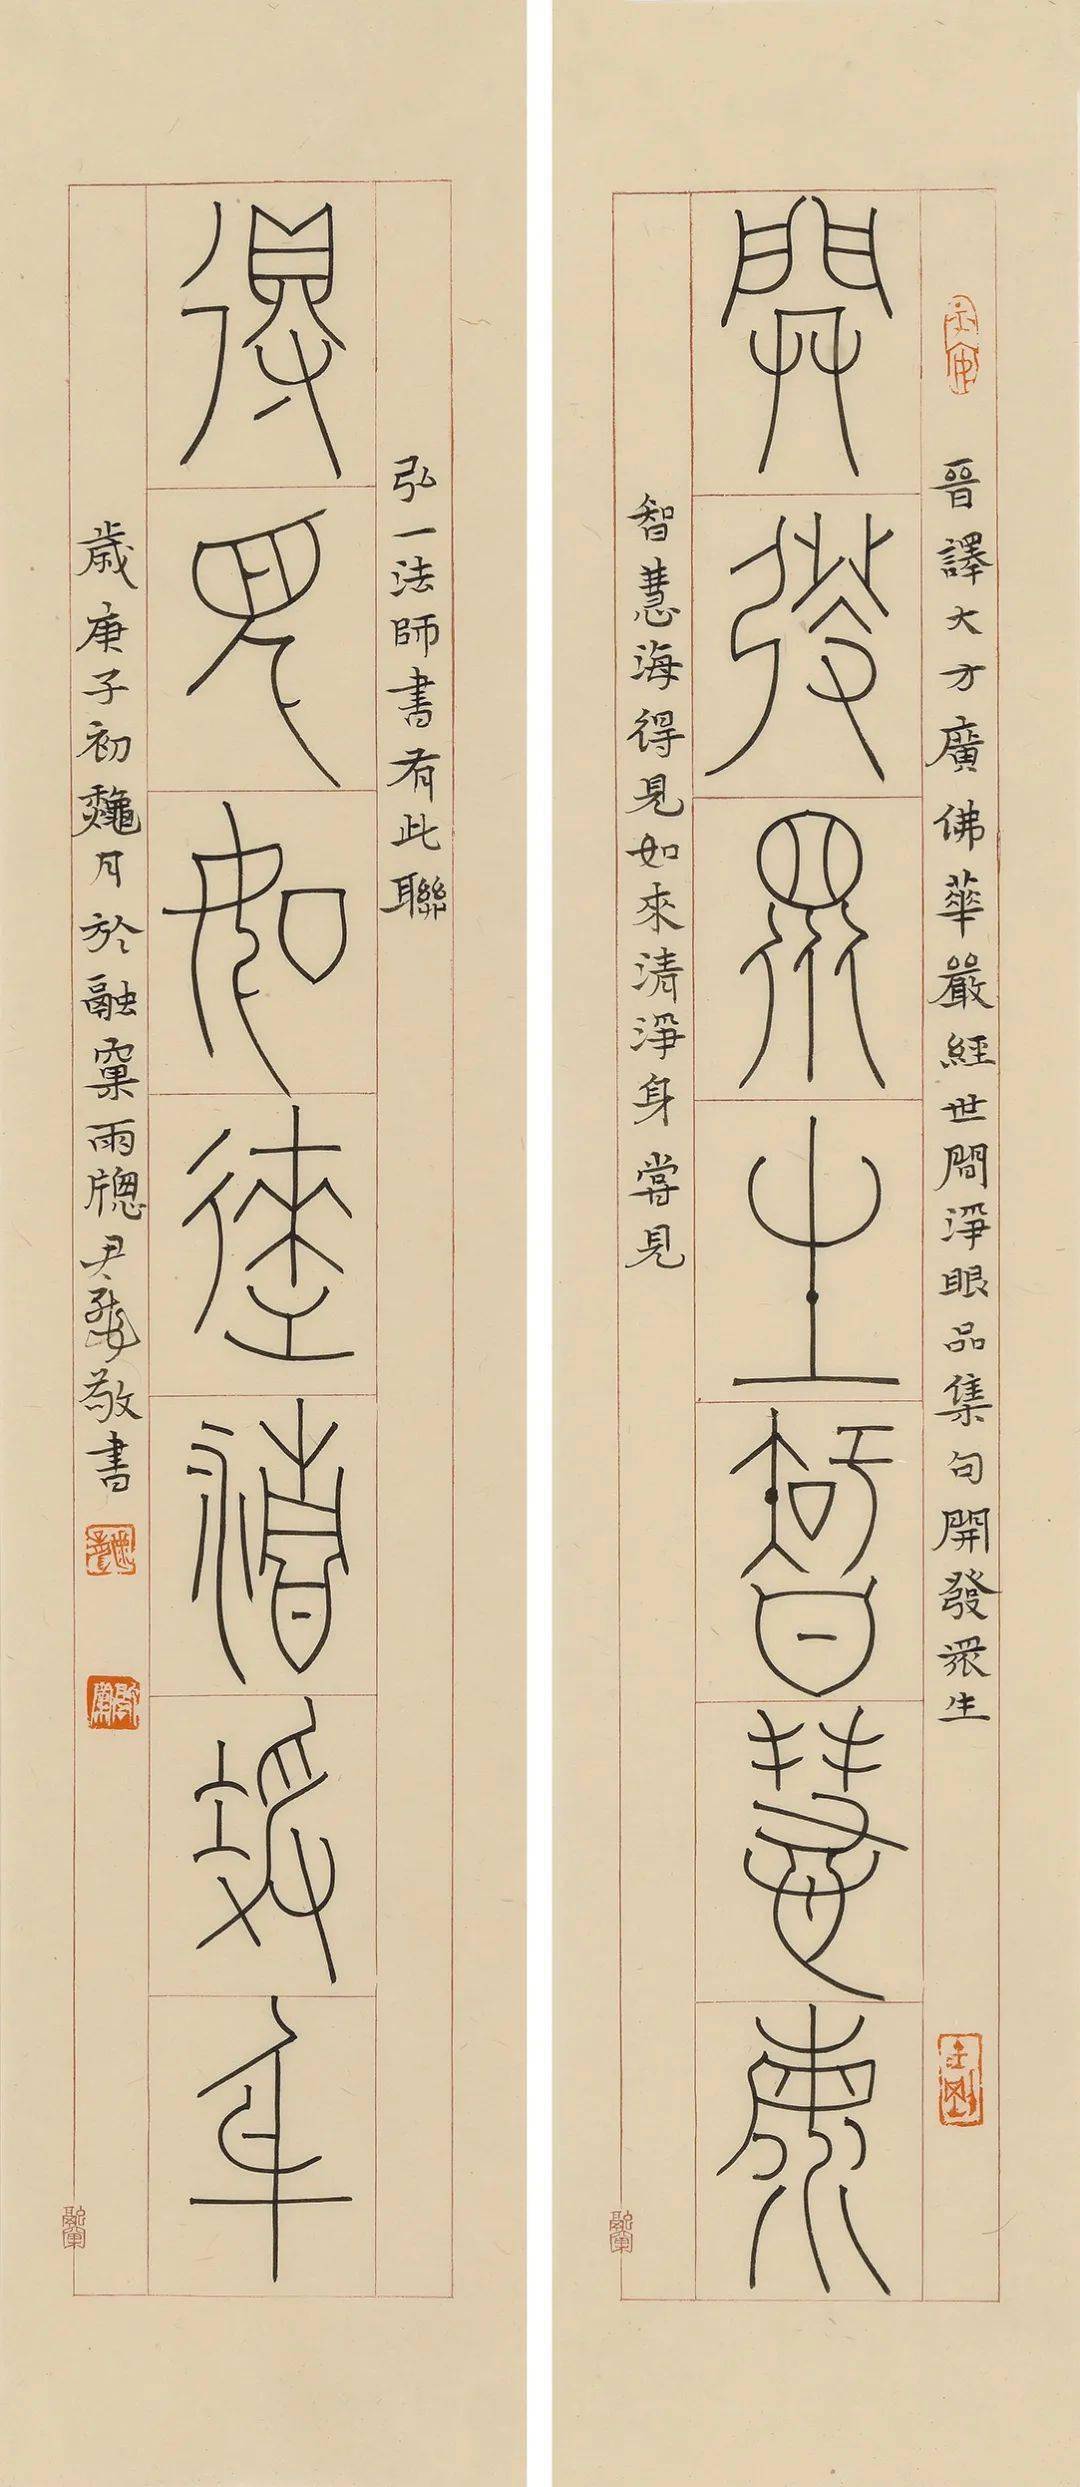 晉譯大方廣佛華嚴經世間淨眼品集句開發眾生
開發眾生智慧海
智慧海得見如來清淨身嘗見
融窠
弘一法師書有此聯
得見如來清淨身
歲庚子初龝月於融窠雨牕尹敬書
融窠